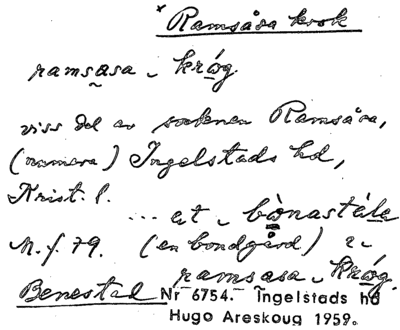 * Ramsåsa krok
ramsasa krog.
viss del av socknen Ramsåsa,
(numera) Ingelstads hd,
Krist. l.
... et bònastèle
M. f. 79. (en bondgård) i
ramsasa krog.
Benestad Nr 6754. Ingelstads hd
Hugo Areskoug 1959.